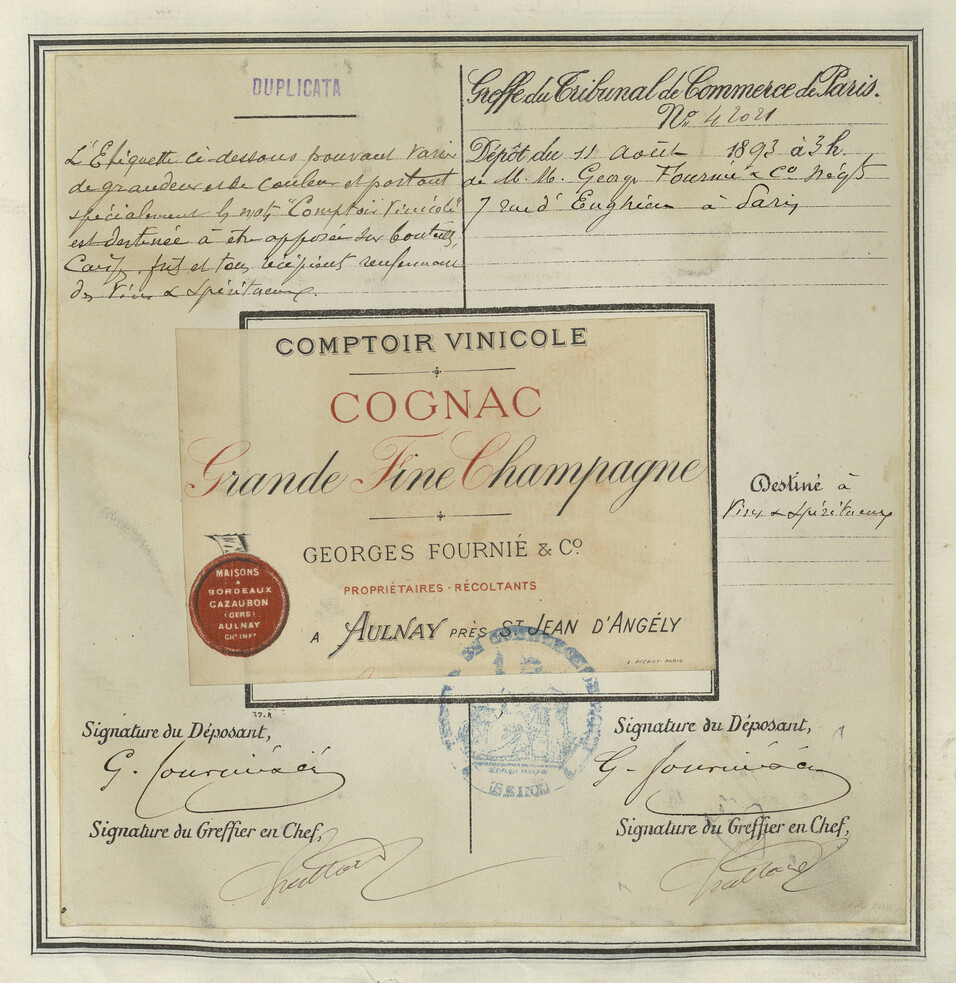 DUPLICATA
L'Etiquette ci-dessous pouvant varier
de grandeur et de couleur et portant
spécialement les mots "Comptoir Vinicole"
est destinée à être apposée sur bouteilles,
fûts et tous récipients renfermant
des Vins & Spiritueux.
Greffe du Tribunal de Commerce de Paris.
No. 42021
Dépôt du 11 août 1893 à 3h.
de M.M. George Fournié & Co Négts
7 rue d'Enghien à Paris
COMPTOIR VINICOLE
COGNAC
Grande Fine Champagne
GEORGES FOURNIÉ & Co.
PROPRIÉTAIRES-RÉCOLTANTS
A AULNAY PRÈS ST JEAN D'ANGÉLY
MAISONS
A
BORDEAUX
CAZAUBON
(GERS)
AULNAY
CHte INFre
PARIS
Destiné à
Vins & Spiritueux
37.A
SEINE
Signature du Déposant,
G. Fournié & Cie
Signature du Greffier en Chef,
Signature du Déposant,
G. Fournié & Cie
Signature du Greffier en Chef,